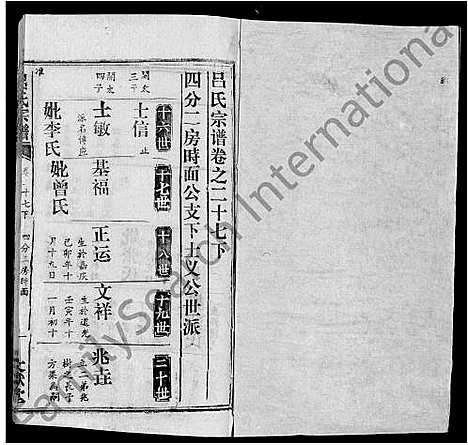 吕氏宗谱卷之二十七下
四分二房時面公支下士义公世派
十六世
十七世
十八世
十九世
二十世
開太
三子
士信 止
開太
四子
士敏
派名傳
基福
正运
生於嘉庆
己卯年十
月十九日
文祥
生於道光
壬寅年十
一月初十
兆垚
立二弟兆
樹之長子
方策為嗣
妣李氏
妣曾氏
吕氏宗譜
卷二十七下
四分二房時面
一
FamilySearch International